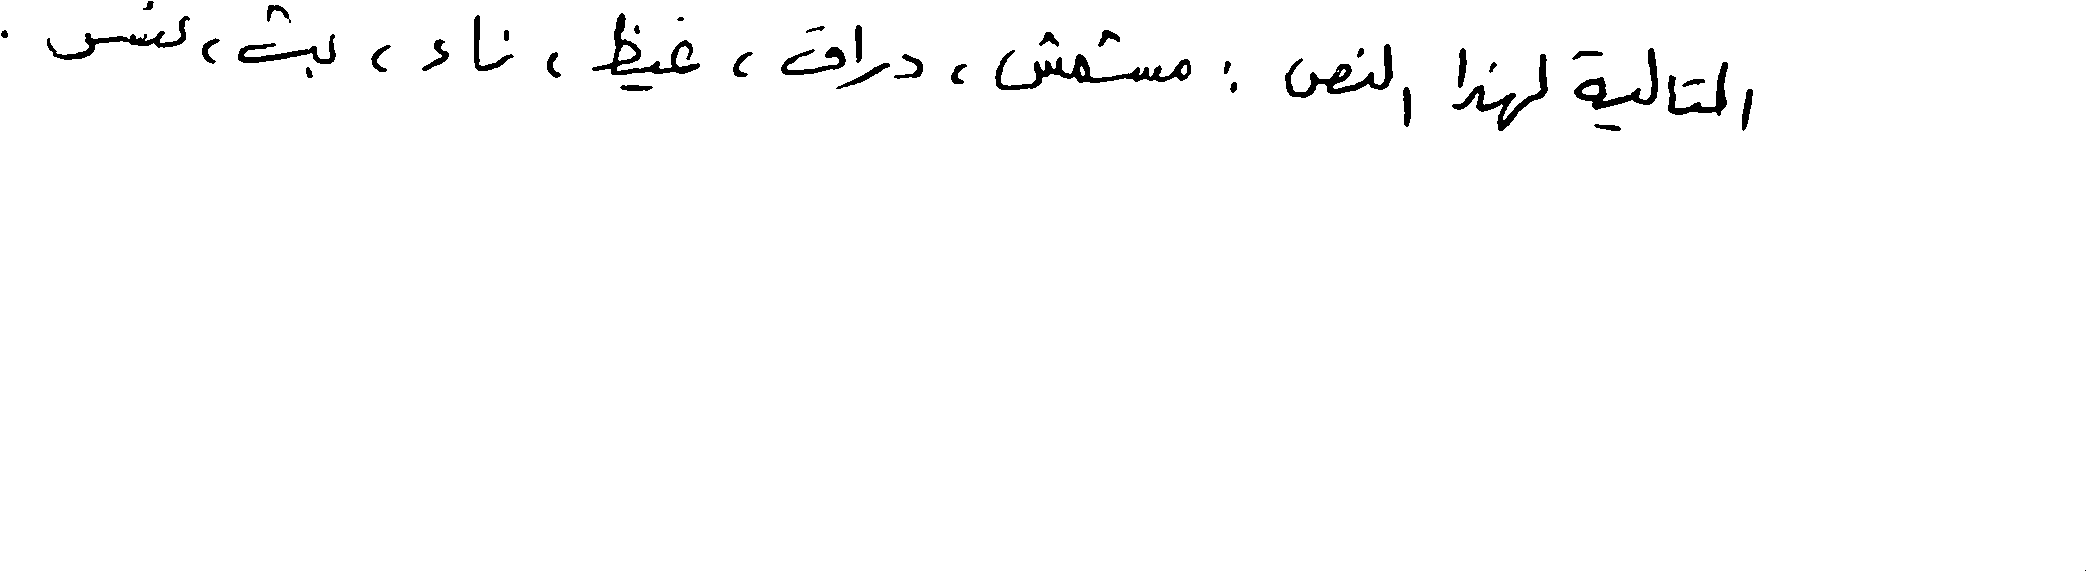 التالية لهذا النص : مشمش ، دراق ، غيظ ، ناء ، لبث ، نفس .